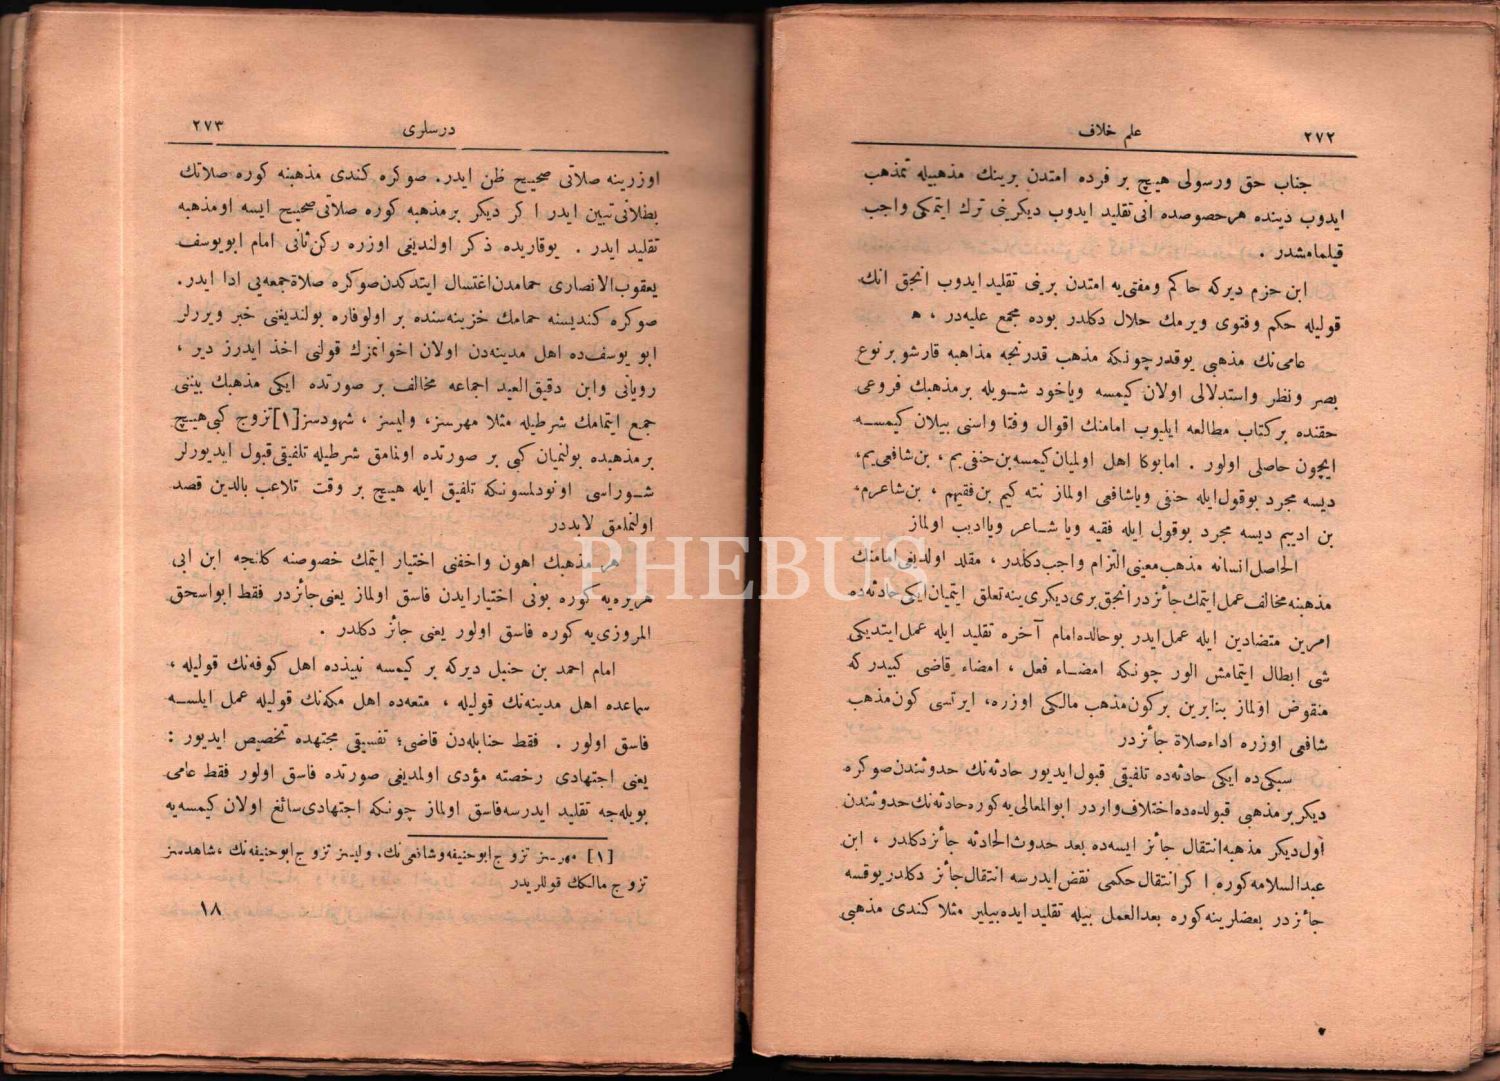 ٢٧٢
علم خلاف
جناب حق ورسولی هیچ بر فرده امتدن برینك مذهبیله تمذهب
ایدوب دینده هرخصوصده انی تقلید ایدوب دیكرینی ترك ایتمكی واجب
قیلمامشدر .
ابن حزم دیركه حاكم ومفتی‌یه امتدن برینی تقلید ایدوب انجق انك
قولیله حكم وفتوی ویرمك حلال دكلدر بوده مجمع علیه‌در ، ه
عامی‌نك مذهبی یوقدر چونكه مذهب قدرنجه مذاهبه قارشو بر نوع
بصر ونظر واستدلالی اولان كیمسه ویاخود شویله بر مذهبك فروعی
حقنده بر كتاب مطالعه ایلیوب امامنك اقوال وفتا واسنی بیلان كیمسه
ایچون حاصلی اولور . امابوكا اهل اولمیان كیمسه بن حنفی‌یم ، بن شافعی‌یم،
دیسه مجرد بوقول ایله حنفی ویاشافعی اولماز نته كیم بن فقیهم ، بن شاعرم،
بن ادیبم دیسه مجرد بوقول ایله فقیه ویا شاعر ویاادیب اولماز
الحاصل انسانه مذهب معینی التزام واجب دكلدر ، مقلد اولدیغی امامنك
مذهبنه مخالف عمل ایتمك جائزدر انجق بری دیكری ینه تعلق ایتمیان ایكی حادثه‌ده
امرین متضادین ایله عمل ایدر بوحالده امام آخره تقلید ایله عمل ایتدیكی
شی ابطال ایتمامش الور چونكه امضاء فعل ، امضاء قاضی كبیدر كه
منقوض اولماز بنابرین بركون مذهب مالكی اوزره، ایرتسی كون مذهب
شافعی اوزره اداء صلاة جائزدر
سبكی‌ده ایكی حادثه‌ده تلفیقی قبول ایدیور حادثه‌نك حدوثندن صوكره
دیكر بر مذهبی قبولده‌ده اختلاف واردر ابوالمعالی‌یه كوره حادثه‌نك حدوثندن
اول دیكر مذهبه انتقال جائز ایسه‌ده بعد حدوث الحادثه جائز دكلدر ، ابن
عبدالسلامه كوره ا كر انتقال حكمی نقض ایدرسه انتقال جائز دكلدر یوقسه
جائزدر بعضلرینه كوره بعدالعمل بیله تقلید ایده‌بیلیر مثلا كندی مذهبی
درسلری
٢٧٣
اوزرینه صلاتی صحیح ظن ایدر. صوكره كندی مذهبنه كوره صلاتك
بطلانی تبین ایدر ا كر دیكر بر مذهبه كوره صلاتی صحیح ایسه اومذهبه
تقلید ایدر . یوقاریده ذكر اولندیغی اوزره ركن ثانی امام ابویوسف
یعقوب الانصاری حمامدن اغتسال ایتدكدن صوكره صلاة جمعه‌یی ادا ایدر.
صوكره كندیسنه حمامك خزینه‌سنده بر اولوفاره بولندیغنی خبر ویررلر
ابو یوسف‌ده اهل مدینه‌دن اولان اخوانمزك قولنی اخذ ایدرز دیر ،
رویانی وابن دقیق العید اجماعه مخالف بر صورتده ایكی مذهبك بیننی
جمع ایتمامك شرطیله مثلا مهرسز، ولیسز ، شهودسز[١] تزوج كبی هیچ
بر مذهبده بولنمیان كبی بر صورتده اونمامق شرطیله تلفیقی قبول ایدیورلر
شوراسی اونودلمسونكه تلفیق ایله هیچ بر وقت تلاعب بالدین قصد
اولنمامق لابددر
هر مذهبك اهون واخفنی اختیار ایتمك خصوصنه كلنجه ابن ابی
هریره‌یه كوره بونی اختیار ایدن فاسق اولماز یعنی جائزدر فقط ابواسحق
المروزی‌یه كوره فاسق اولور یعنی جائز دكلدر .
امام احمد بن حنبل دیركه بر كیمسه نبیذده اهل كوفه‌نك قولیله ،
سماعده اهل مدینه‌نك قولیله ، متعه‌ده اهل مكه‌نك قولیله عمل ایلسه
فاسق اولور . فقط حنابله‌دن قاضی؛ تفسیقی مجتهده تخصیص ایدیور :
یعنی اجتهادی رخصته مؤدی اولمدیغی صورتده فاسق اولور فقط عامی
بویله‌جه تقلید ایدرسه فاسق اولماز چونكه اجتهادی سائغ اولان كیمسه‌یه
[١] مهرسز تزوج ابوحنیفه وشافعی‌نك، ولیسز تزوج ابوحنیفه‌نك ، شاهدسز
تزوج مالكك قوللریدر
١٨
PHEBUS